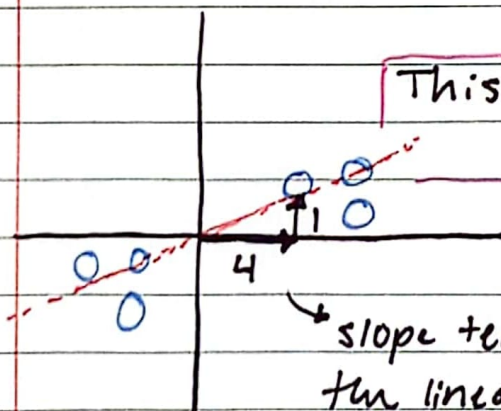 This
1
4
slope te
the linea